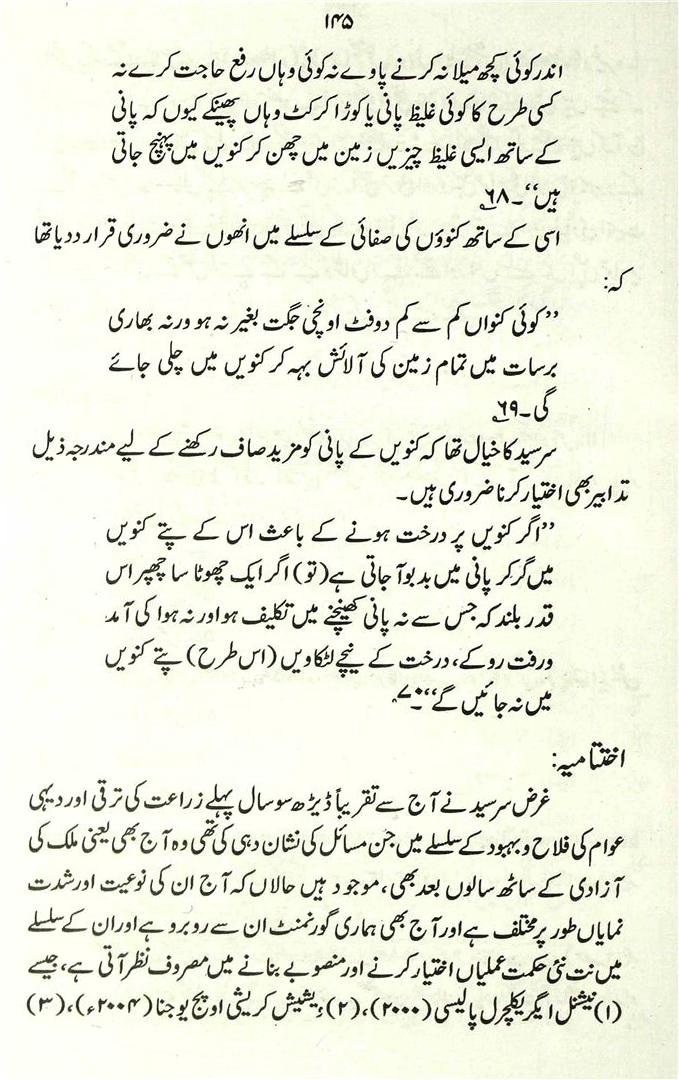 ۱۴۵
اندر کوئی کچھ میلا نہ کرنے پاوے نہ کوئی وہاں رفع حاجت کرے نہ
کسی طرح کا کوئی غلیظ پانی یا کوڑا کرکٹ وہاں پھینکے کیوں کہ پانی
کے ساتھ ایسی غلیظ چیزیں زمین میں چھن کر کنویں میں پہنچ جاتی
ہیں‘‘۔۶۸
اسی کے ساتھ کنوؤں کی صفائی کے سلسلے میں انھوں نے ضروری قرار ددیا تھا
کہ:
’’کوئی کنواں کم سے کم دوفٹ اونچی جگت بغیر نہ ہو ورنہ بھاری
برسات میں تمام زمین کی آلائش بہہ کر کنویں میں چلی جائے
گی۔۶۹
سرسید کا خیال تھا کہ کنویں کے پانی کو مزید صاف رکھنے کے لیے مندرجہ ذیل
تدابیر بھی اختیار کرنا ضروری ہیں۔
’’اگر کنویں پر درخت ہونے کے باعث اس کے پتے کنویں
میں گر کر پانی میں بدبو آجاتی ہے (تو) اگر ایک چھوٹا سا چھپر اس
قدر بلند کہ جس سے نہ پانی کھینچنے میں تکلیف ہو اور نہ ہوا کی آمد
ورفت روکے، درخت کے نیچے لٹکاویں (اس طرح) پتے کنویں
میں نہ جائیں گے‘‘۔۷۰
اختتامیہ:
غرض سرسید نے آج سے تقریباً ڈیڑھ سو سال پہلے زراعت کی ترقی اور دیہی
عوام کی فلاح و بہبود کے سلسلے میں جن مسائل کی نشان دہی کی تھی وہ آج بھی یعنی ملک کی
آزادی کے ساٹھ سالوں بعد بھی، موجود ہیں حالاں کہ آج ان کی نوعیت اور شدت
نمایاں طور پر مختلف ہے اور آج بھی ہماری گورنمنٹ ان سے روبرو ہے اور ان کے سلسلے
میں نت نئی حکمت عملیاں اختیار کرنے اور منصوبے بنانے میں مصروف نظر آتی ہے، جیسے
(۱) نیشنل ایگریکلچرل پالیسی (۲۰۰۰)، (۲) ویشیش کریشی اوپج یوجنا (۲۰۰۴ء)، (۳)